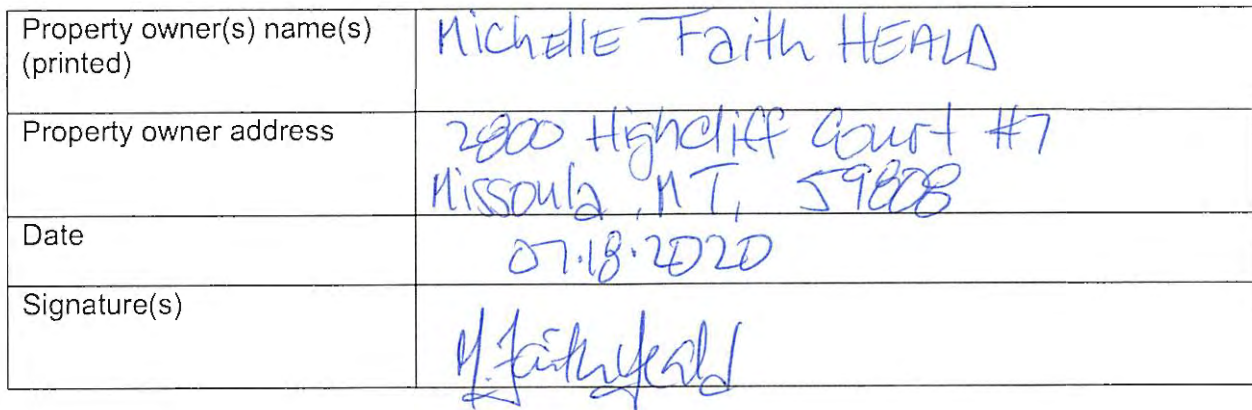 Property owner(s) name(s) Michelle Faith HEALD
(printed)
Property owner address 2800 Highcliff Court #7
Missoula, MT, 59808
Date 07.18.2020
Signature(s) M. Faith Heald